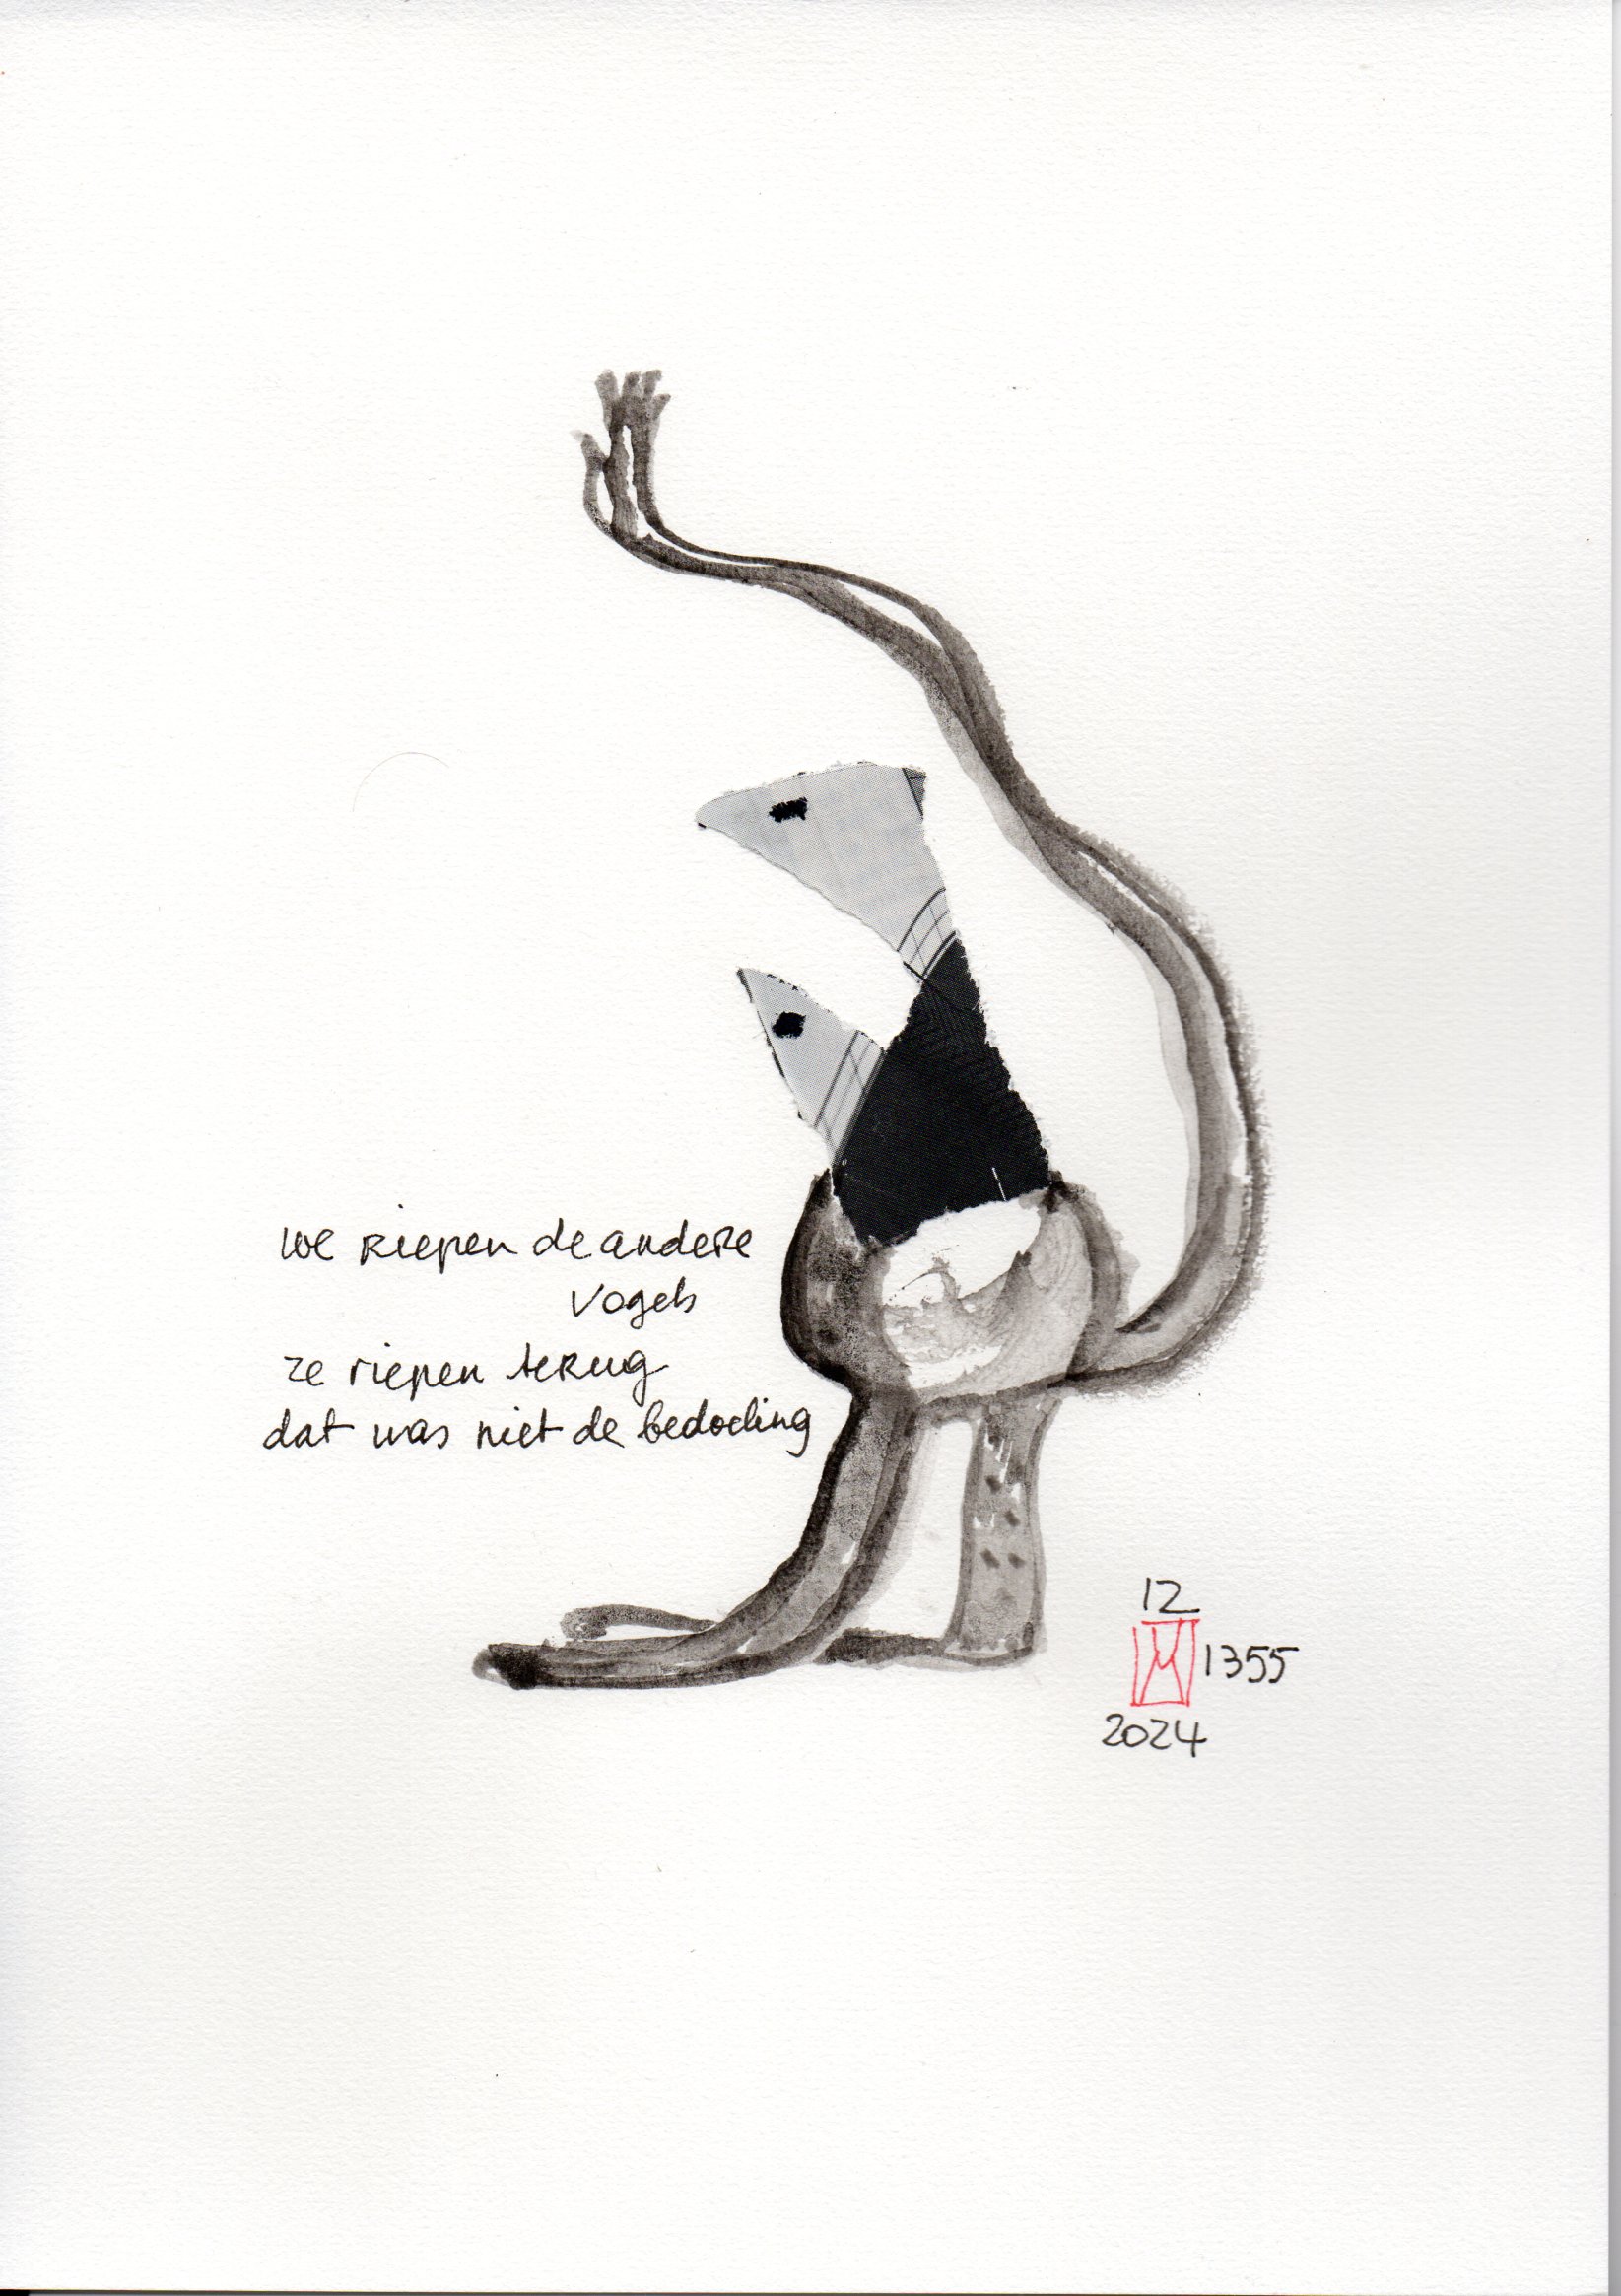 we riepen de andere
vogels
ze riepen terug
dat was niet de bedoeling
12
1355
2024